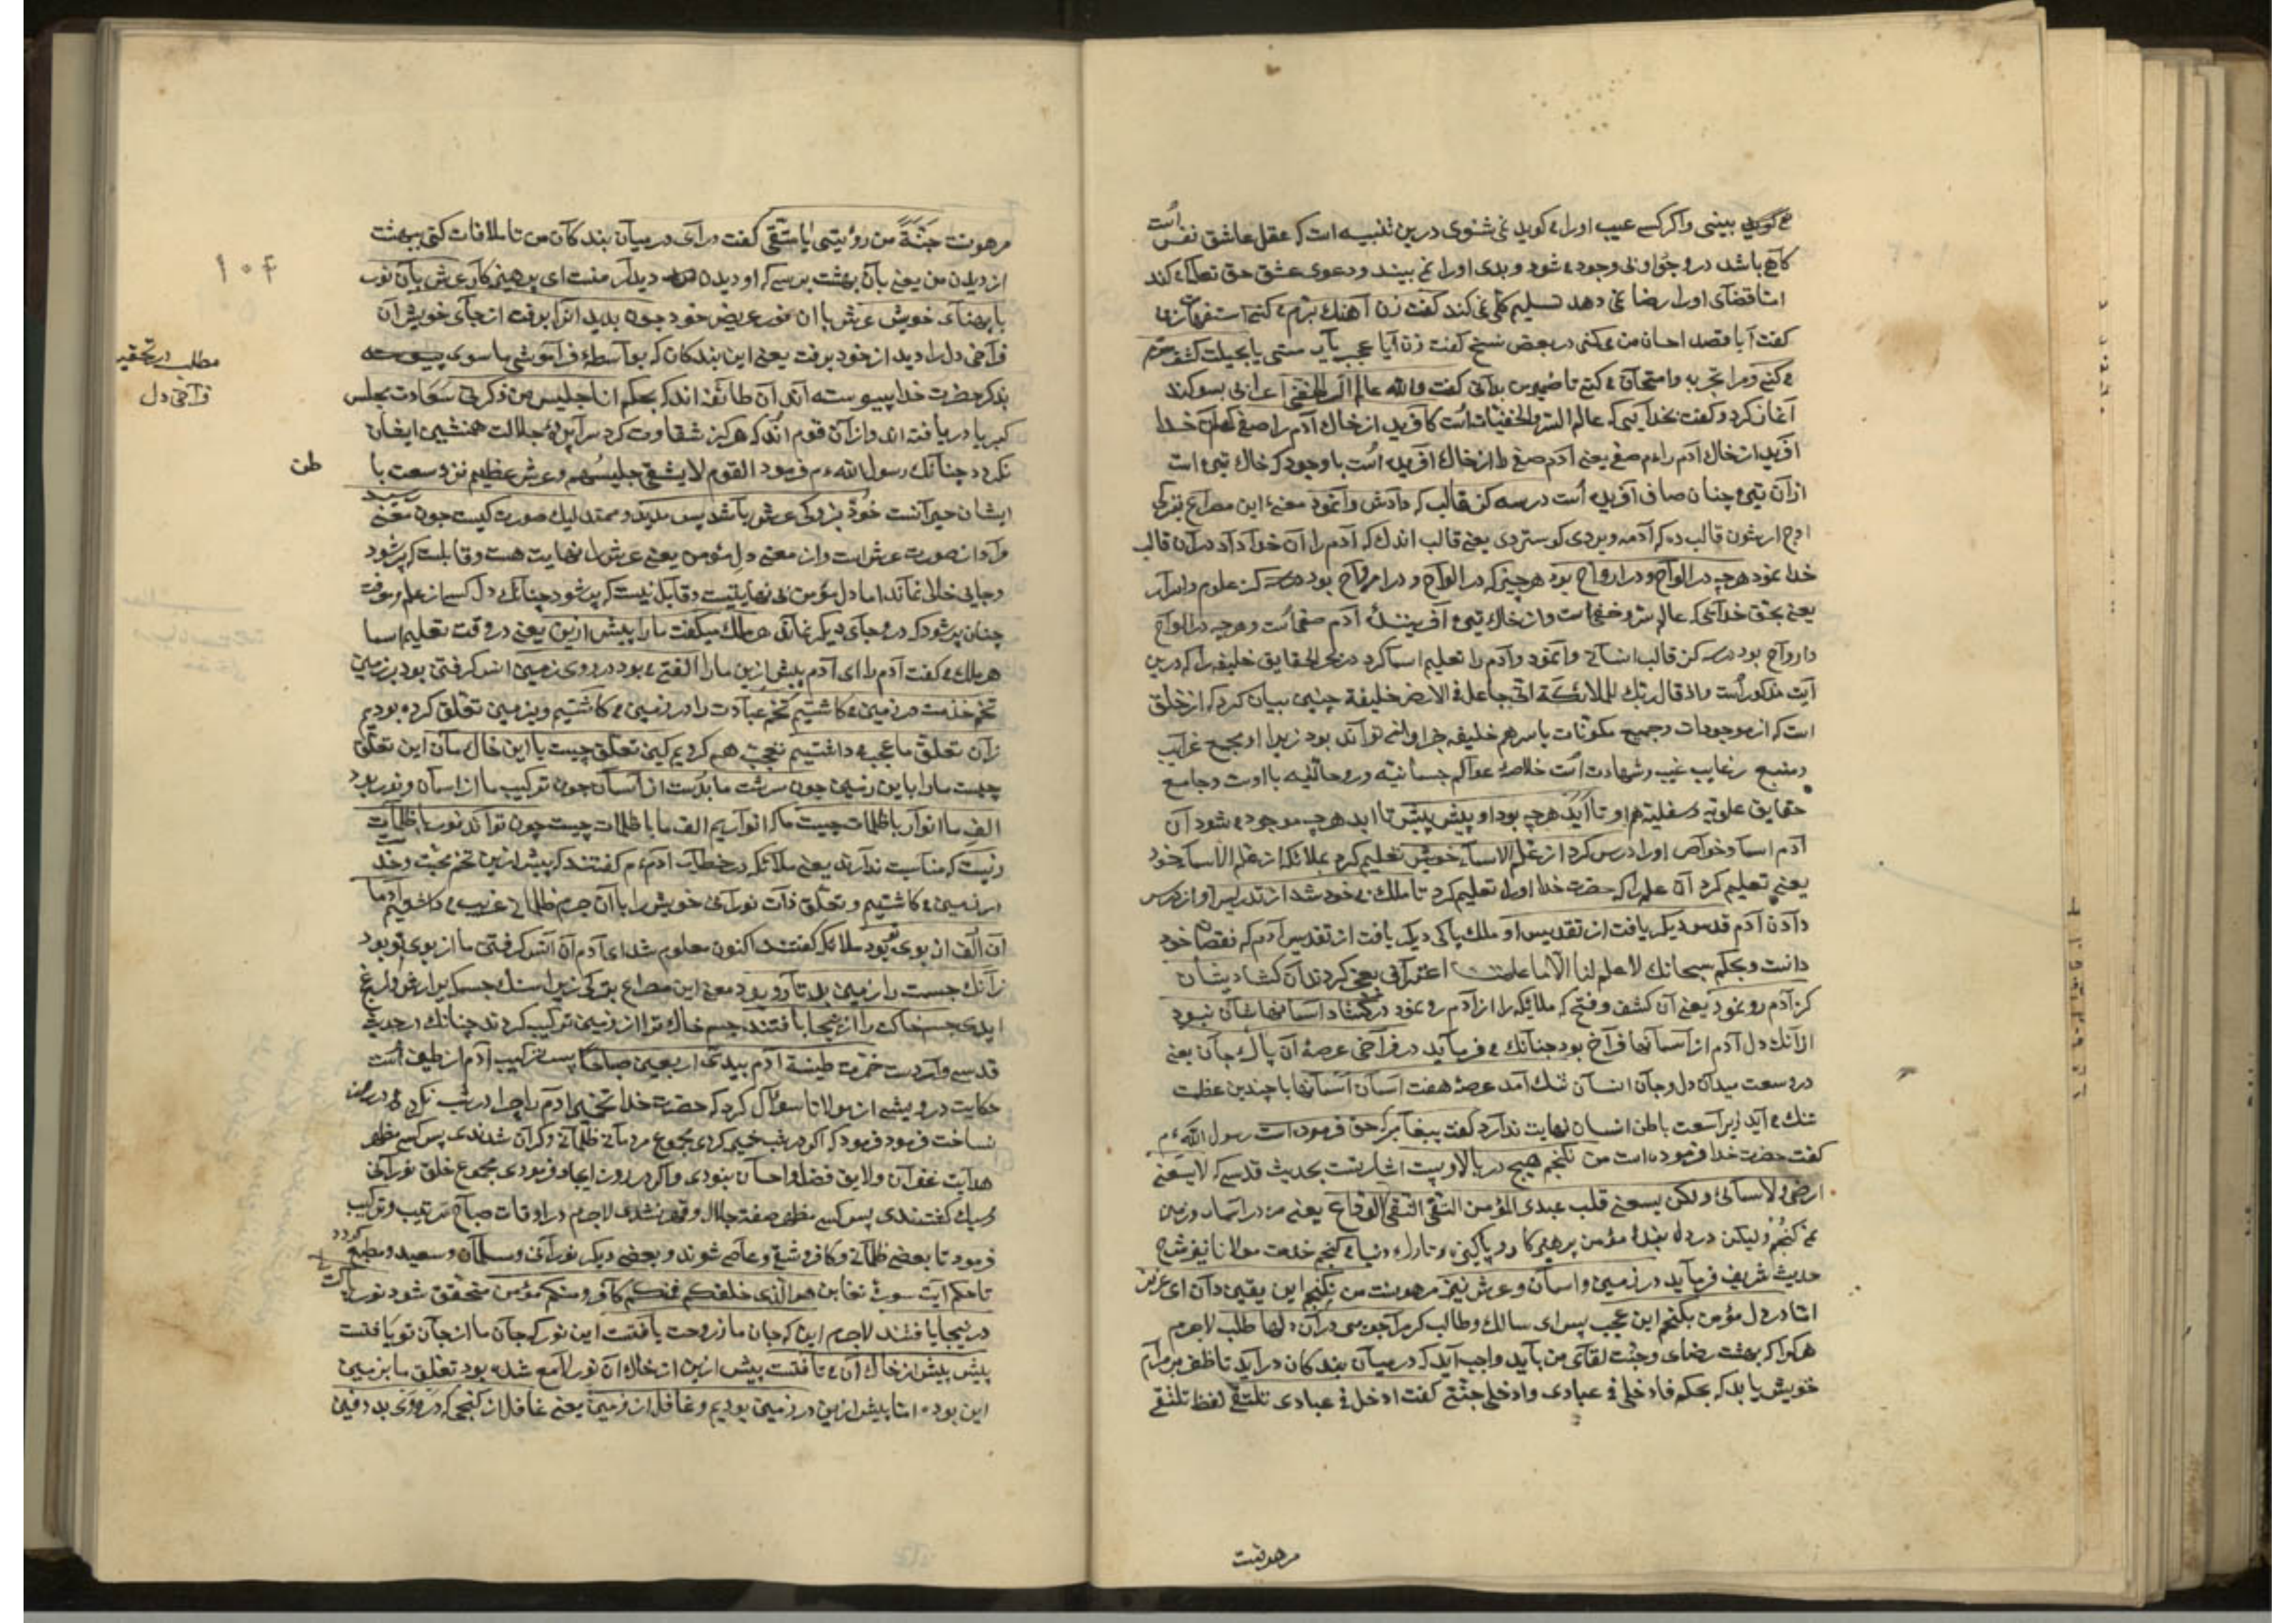 بینی واکر کسے عیب اورا می کوید نمی شنوی درین تنبیه است که عقل عاشق نفس است
کاهی باشد در وجود می شود و بدی اورا نمی بیند ودعوی عشق حق تعالی می کند
امّا قضای اورا رضا نمی دهد تسلیم کلی نمی کند کفت زن آهنک
کفت آیا قصد احسان من می کنی در بعض نسخ کفت زن آیا عجب یار منی یا بحیلت کشف سرّم
می کنی ومرا تجربه وامتحان می کنی تا ضمیر من بدانی کفت والله عالم السرّ الخفی اعرابی سوکند
آغاز کرد وکفت بخدایی که عالم السرّ والخفیّات است کافرید از خاک آدم را صفی خدا
آفرید از خاک آدم راءم صفی یعنی آدم صفی را از خاک آفریده است با وجود که خاک تیره است
از آن تیره چنان صاف آفریده است در سه کز قالب که دادش وانمود معنی این مصراع
قالب آدم را آن خدا داد در آن قالب
خدا نمود هرچه در الواح ودر ارواح بود هرچیز که در الواح و در ارواح بود علوم واسرار
یعنی بحق خدایی که عالم سرّ وخفی است واز خاک تیره آفرینندهٔ آدم صفی است وهرچه در الواح
وارواح بود در سه کز قالب انسانی وانمود وآدم را تعلیم اسما کرد در بحر الحقایق خلیفه را که درین
آیت مذکور است واذ قال ربّک للملائکة انّی جاعل فی الارض خلیفة چنین بیان کرد که از خلق
است که از موجودات وجمیع مکوّنات یا سر هم خلیفه توآند بود زیرا او مجمع غرایب
ومنبع رغایب غیب وشهادت است خلاصهٔ عوالم جسمانیّه وروحانیّه با اوست وجامع
حقایق علویّه وسفلیّه هم او تا ابد هرچه بود او پیش پیش تا ابد هرچه موجود می شود آن
آدم اسما وخواص اورا درس کرد از علّم الاسماء خویش تعلیم کرد بملائکه از علّم الاسماء خود
یعنی تعلیم کرد آن علم را که حضرت خدا اورا تعلیم کرد تا ملک بی خود شد از تدریس او از درس
دادن آدم قدس دیکر یافت از تقدیس او ملک پاکی دیکر یافت از تقدیس آدم که نقصان خود
دانست وبحکم سبحانک لا علم لنا الّا ما علمتنا اعتراف بعجز کردند آن کشادیشان
کز آدم رو نمود یعنی آن کشف وفتحی که ملائکه را از آدم رو نمود در کشاد آسمانهاشان نبود
از آنک دل آدم از آسمانها فراخ بود چنانک می فرماید در فراخی عرصهٔ آن پاک جان یعنی
در وسعت میدان دل وجان انسان تنک آمد عرصهٔ هفت آسمان آسمانها با چندین عظمت
تنک می آید زیرا سعت باطن انسان نهایت ندارد کفت پیغامبر که حق فرموده است رسول اللهءم
کفت حضرت خدا فرموده است من نکنجم هیچ در بالا وپست اشارتست بحدیث قدسی که لا یسعنی
ارضی ولا سمائی ولکن یسعنی قلب عبدی المؤمن التقی النقی الورّاع یعنی من در آسمان وزمین
نمی کنجم ولیکن در دل بندهٔ مؤمن پرهیزکار وپاکیزه وتارک دنیا می کنجم خدمت مولانا نیز شرح
حدیث شریف فرماید در زمین وآسمان وعرش نیز من نکنجم این یقین دان ای عزیز
امّا در دل مؤمن بکنجم این عجب پس ای سالک وطالب کر مرا جویی در آن دلها طلب لاجرم
هرکرا که بهشت رضای وجنّت لقای من باید واجب آید که در میان بندکان در آید تا ظفر بر مرام
خویش یابد که بحکم فادخلی فی عبادی وادخلی جنّتی کفت ادخل فی عبادی تلتقی لفظ تلتقی
جنّة من رؤیتی یا متّقی کفت در آی در میان بندکان من تا ملاقات کنی ببهشت
از دیدن من یعنی بآن بهشت برسی که او دیدن دیدار منست ای پرهیزکار عرش بآن نور
با پهنای خویش عرش با آن نور عریض خود چون بدید آنرا برفت از جای خویش آن
فراخی دل را دید از خود برفت یعنی این بندکان که بواسطهٔ فراموشی ما سوی
بذکر حضرت خدا پیوسته اند آن طائفه اند که بحکم انا جلیس من ذکرنی سعادت مجلس
کبریا دریافته اند واز آن قوم اند که هرکز شقاوت کرد سراپردهٔ جلالت همنشین ایشان
نکردد چنانک رسول اللهءم فرمود القوم لا یشقی جلیسهم وعرش عظیم نزد سعت با
ایشان چیزانست خود بزرکی عرش باشد بس مدید وممتد لیک صورت کیست چون معنی رسید
مراد از صورت عرش است واز معنی دل مؤمن یعنی عرش را نهایت هست وقابلست که پر شود
وجایی خالی نماند اما دل مؤمن بی نهایتست وقابل نیست که پر شود چنانک دل کسی از علم ومعرفت
چنان پر شود که درو جای دیکر نماند هر ملک میکفت مارا پیش ازین یعنی در وقت تعلیم اسما
هر ملک می کفت آدم را ای آدم پیش ازین مارا الفتی می بود در روی زمین انس کرفتن بود بر زمین
تخم خدمت در زمین می کاشتیم تخم عبادت را در زمین می کاشتیم وبزمین تعلّق کرده بودیم
زان تعلّق ما عجب می داشتیم تعجّب هم کردیم کین تعلّق چیست با این خاکمان این تعلّق
چیست مارا با این زمین چون سرشت ما بدست از آسمان چون ترکیب ما از آسمان ونور بود
الف ما انوار با ظلمات چیست ما که انواریم الف ما با ظلمات چیست چون تواند نور با ظلمات زیست
که مناسبت ندارند یعنی ملائکه در خطاب آدمءم کفتند که پیش ازین تخم محبّت وخدمت
در زمین می کاشتیم وتعلّق ذات نورانی خویش را با آن جرم ظلمانی غریب می داشتیم آدما
آن الف از بوی تو بود ملائکه کفتند اکنون معلوم شد ای آدم آن انس کرفتن ما از بوی تو بود
زانک جسمت را زمین بد تار وپود معنی این مصراع
جسم خاکت را ازینجا بافتند جسم خاک ترا از زمین ترکیب کردند چنانک در حدیث
قدسی وارد است خمّرت طینة آدم بیدی اربعین صباحًا پس ترکیب آدم از طین است
حکایت درویشی از مولانا سؤال کرد که حضرت خدا تخمیر آدم را چرا در شب نکرد ودر روز
ساخت فرمود فرمود که اکر در شب خمیر کردی مجموع مردمان ظلمانی وکران شدندی پس کسی مظهر
هدایت غفران ولایق فضل واحسان نبودی واکر در روز ایجاد فرمودی مجموع خلق نورانی
وسبک کشتندی پس کسی مظهر صفت جلال وقهر نشدی لاجرم در اوقات صباح ترتیب وترکیب
فرمود تا بعضی ظلمانی وکافر وشقی وعاصی شوند وبعضی دیکر نورانی ومسلمان وسعید ومطیع کردد
تا حکم آیت سورهٔ تغابن هو الّذی خلقکم فمنکم کافر ومنکم مؤمن متحقّق شود نور پاکت را
درینجا یافتند لاجرم این که جان ما ز روحت یافتست این نور که جان ما از جان تو یافتست
پیش پیش از خاک آن می تافتست پیش ازین از خاک آن نور لامع شده بود تعلّق ما بزمین
این بوده امّا پیش ازین در زمین بودیم وغافل از زمین یعنی غافل از کنجی که در وی بد دفین
مطلب در تحقیق
فراخی دل
۱۰۴